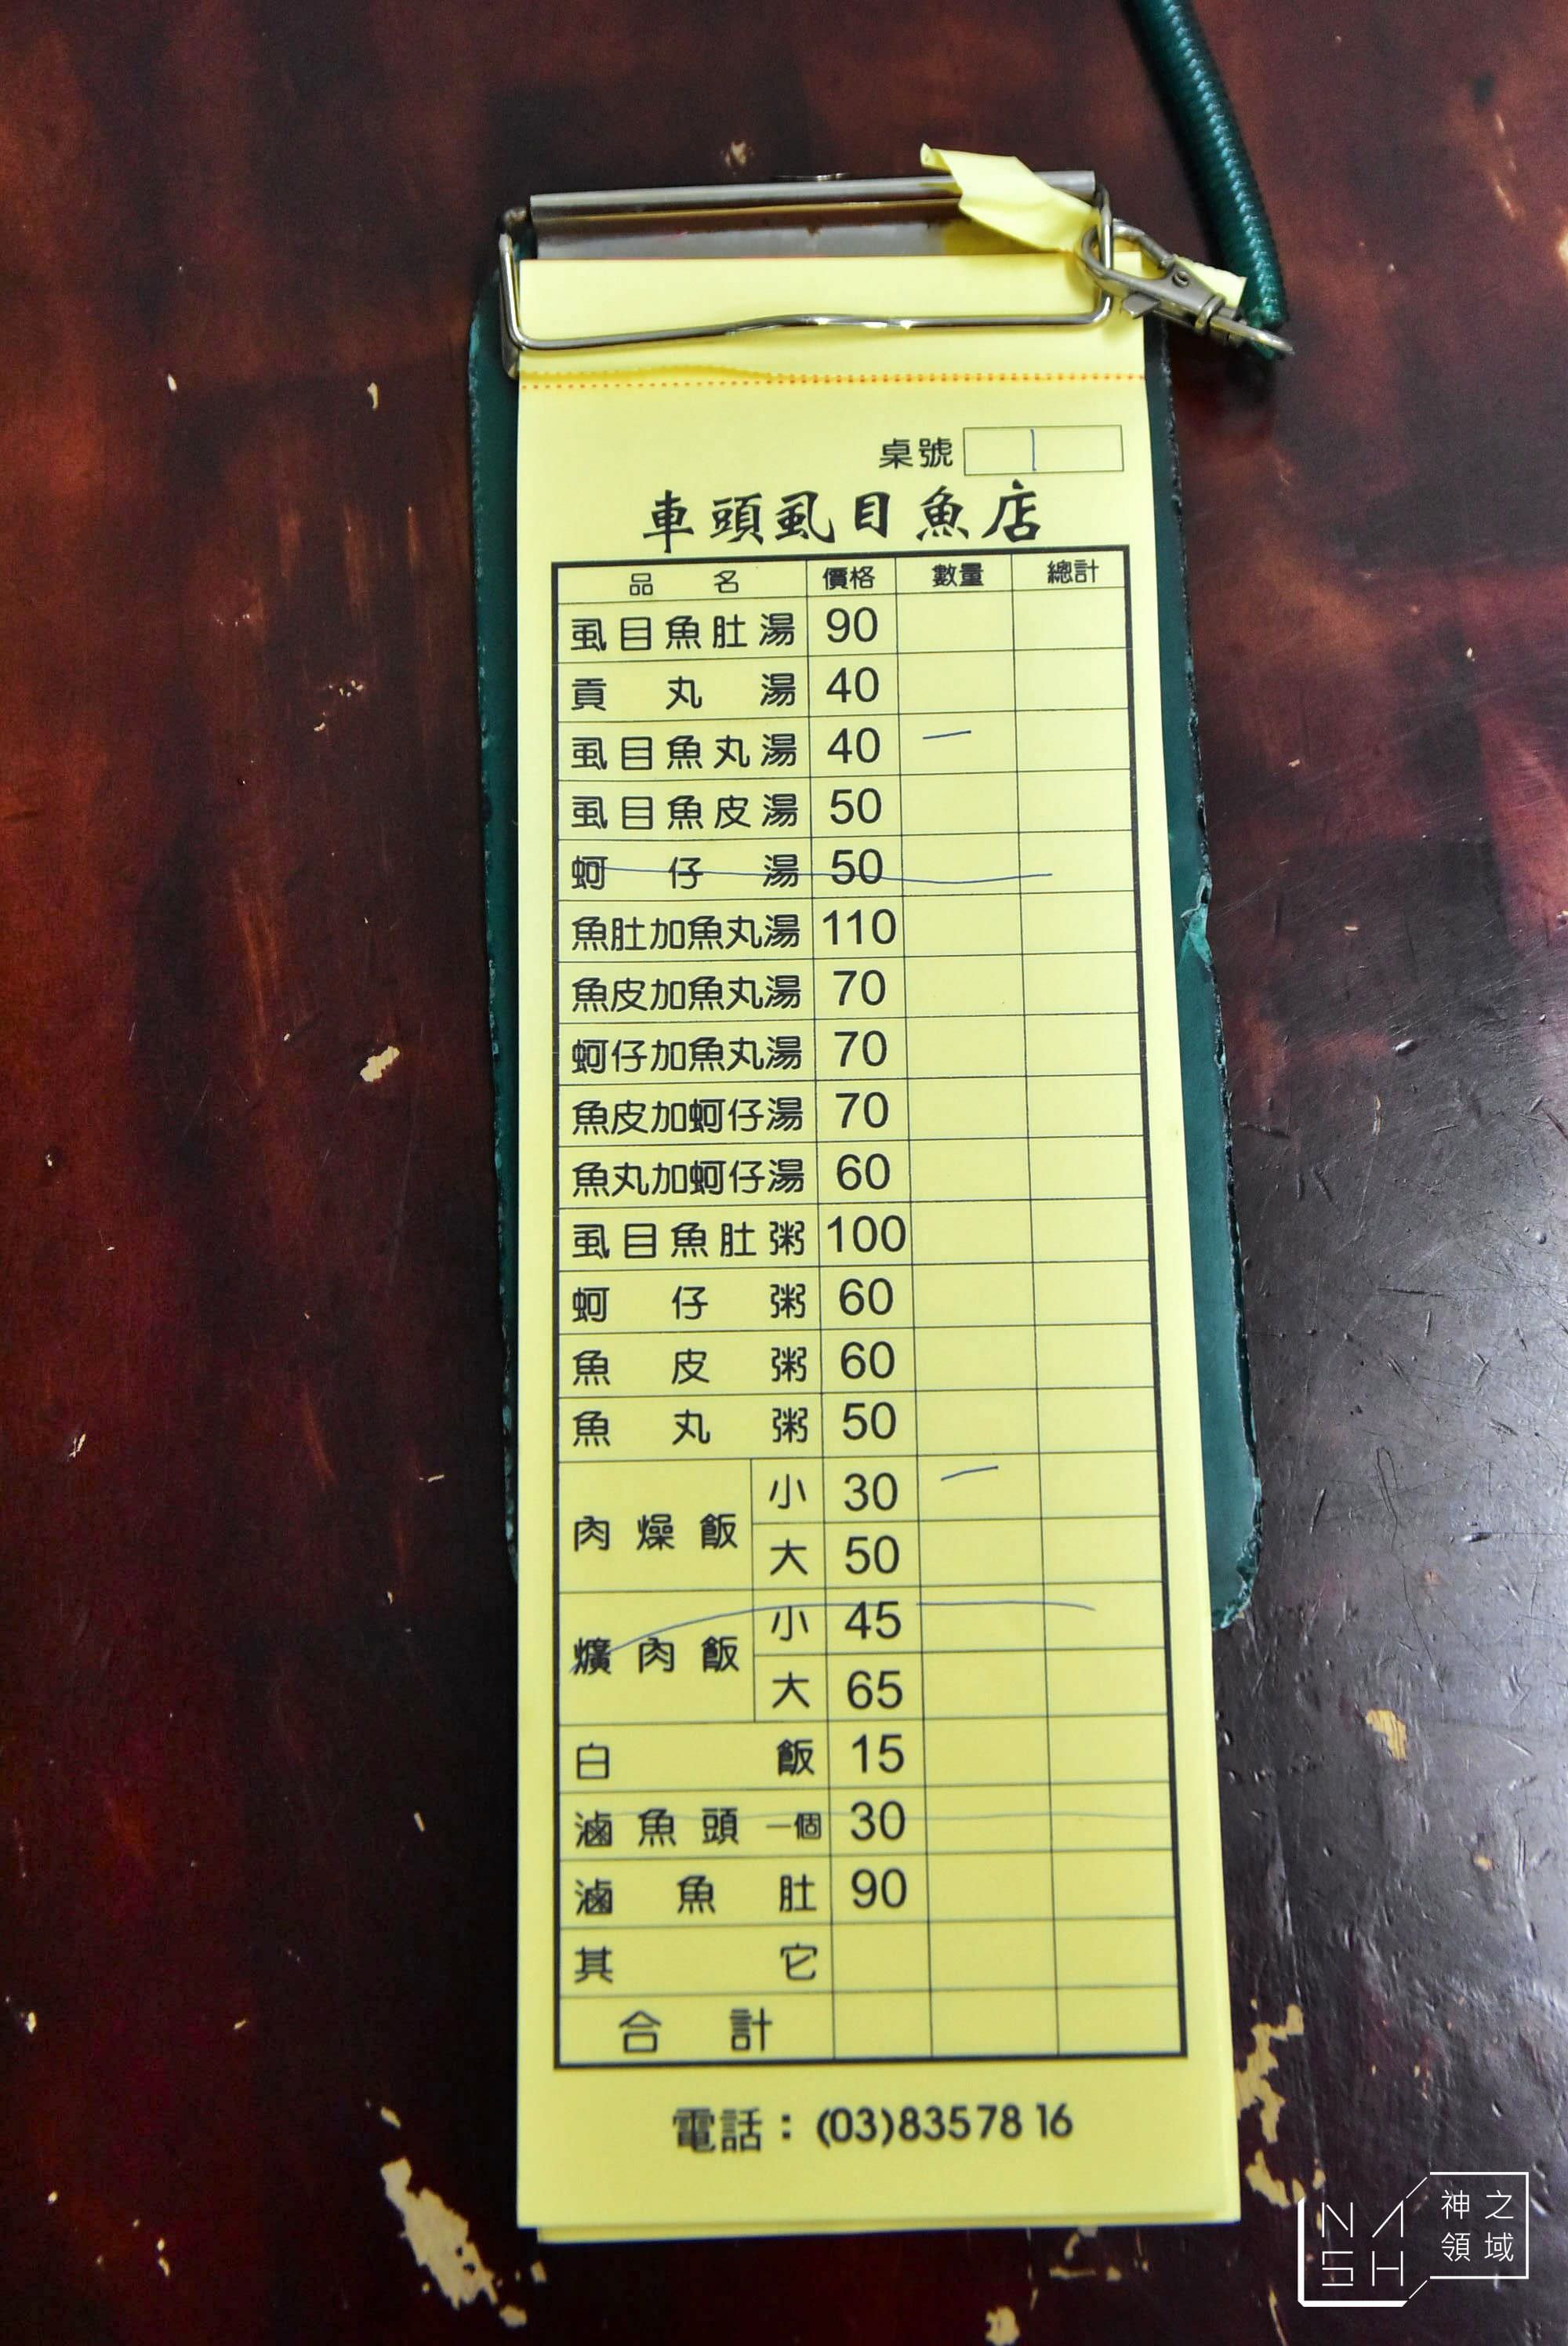 桌號 1
車頭虱目魚店
品名 價格 數量 總計
虱目魚肚湯 90
貢丸湯 40
虱目魚丸湯 40 一
虱目魚皮湯 50
蚵仔湯 50
魚肚加魚丸湯 110
魚皮加魚丸湯 70
蚵仔加魚丸湯 70
魚皮加蚵仔湯 70
魚丸加蚵仔湯 60
虱目魚肚粥 100
蚵仔粥 60
魚皮粥 60
魚丸粥 50
肉燥飯 小 30 一
大 50
爌肉飯 小 45
大 65
白飯 15
滷魚頭 一個 30
滷魚肚 90
其它
合計
電話：(03)8357816
NASH 神之領域